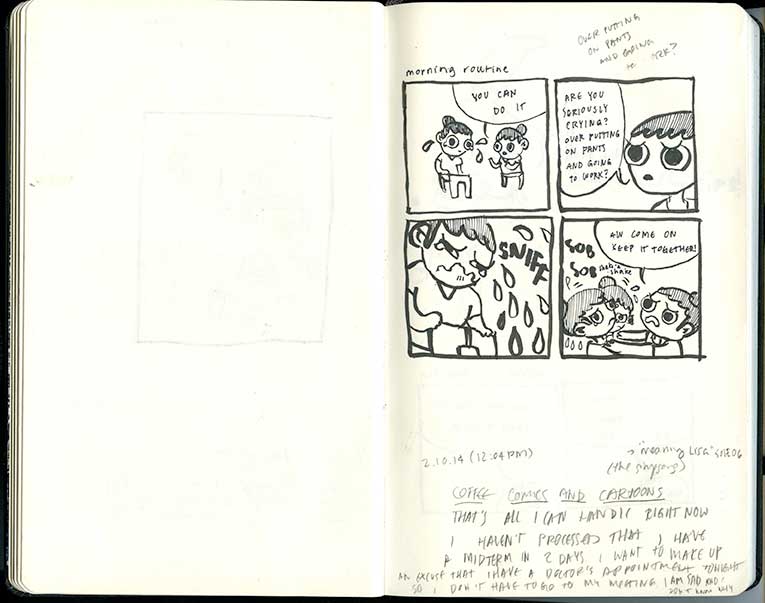 OVER PUTTING
ON PANTS
AND GOING
to WORK?
morning routine
YOU CAN
DO IT
ARE YOU
SERIOUSLY
CRYING?
OVER PUTTING
ON PANTS
AND GOING
TO WORK?
SNIFF
SOB
SOB
shake
shake
AW COME ON
KEEP IT TOGETHER!
2.10.14 (12:04PM)
"moaning LISA" S01E06
(the simpsons)
COFFEE COMICS AND CARTOONS
THAT'S ALL I CAN HANDLE RIGHT NOW
I HAVEN'T PROCESSED THAT I HAVE
A MIDTERM IN 2 DAYS. I WANT TO MAKE UP
AN EXCUSE THAT I HAVE A DOCTOR'S APPOINTMENT TONIGHT
SO I DON'T HAVE TO GO TO MY MEETING. I AM SAD AND I
DON'T KNOW WHY